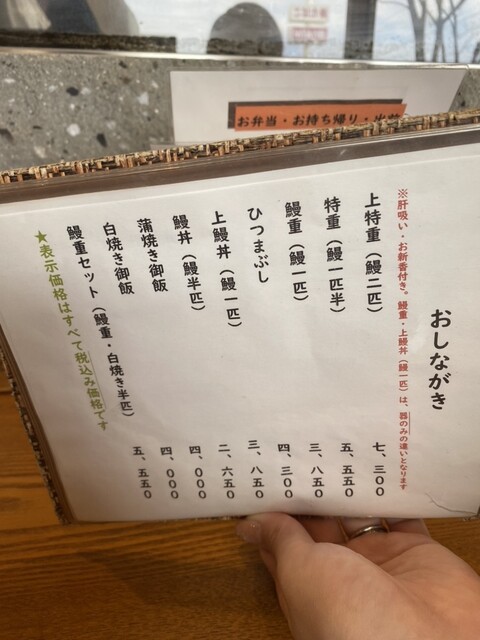 お弁当・お持ち帰り・出前
おしながき
※肝吸い・お新香付き。鰻重・上鰻丼（鰻一匹）は、器のみの違いとなります
上特重（鰻二匹） 七、三〇〇
特重（鰻一匹半） 五、五五〇
鰻重（鰻一匹） 三、八五〇
ひつまぶし 四、三〇〇
上鰻丼（鰻一匹） 三、八五〇
鰻丼（鰻半匹） 二、六五〇
蒲焼き御飯 四、〇〇〇
白焼き御飯 四、〇〇〇
鰻重セット（鰻重・白焼き半匹） 五、五五〇
★表示価格はすべて税込み価格です